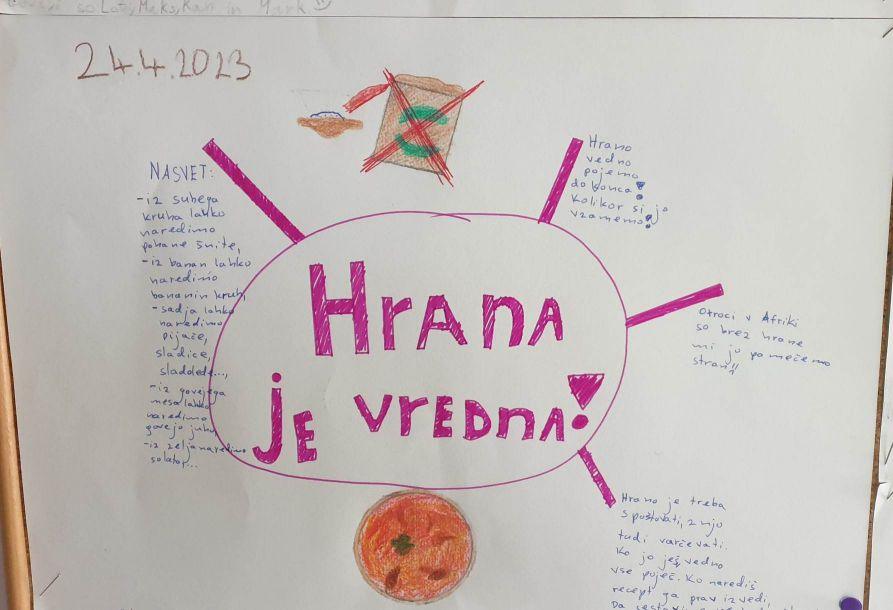 so Lato, Maks, Kan in Mark.
24.4.2023
NASVET:
-iz suhega
kruha lahko
naredimo
pohane šnite,
-iz banan lahko
naredimo
bananin kruh,
-sadja lahko
naredimo
pijače,
sladice,
sladolede...,
-iz govejega
mesa lahko
naredimo
govejo juho
-iz zelja naredimo
solato...
Hrano
vedno
pojemo
do konca!
Kolikor si jo
vzamemo!
Hrana
je vredna!
Otroci v Afriki
so brez hrane
mi jo pa mečemo
stran!!
Hrano je treba
spoštovati, z njo
tudi varčevati.
Ko jo ješ, vedno
vse poješ. Ko narediš
recept ga prav izvedi,
Da